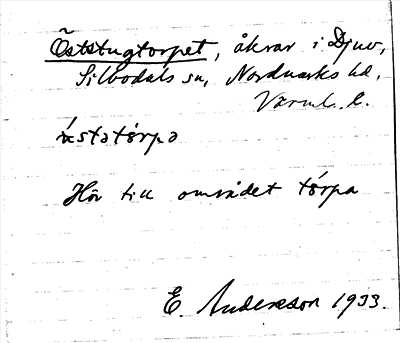 Öststugtorpet, åkrar i Djuv,
Silbodals sn, Nordmarks hd,
Värml. l.
ɤ́stotórpə
Hör till området tórpa
E. Andersson 1933.